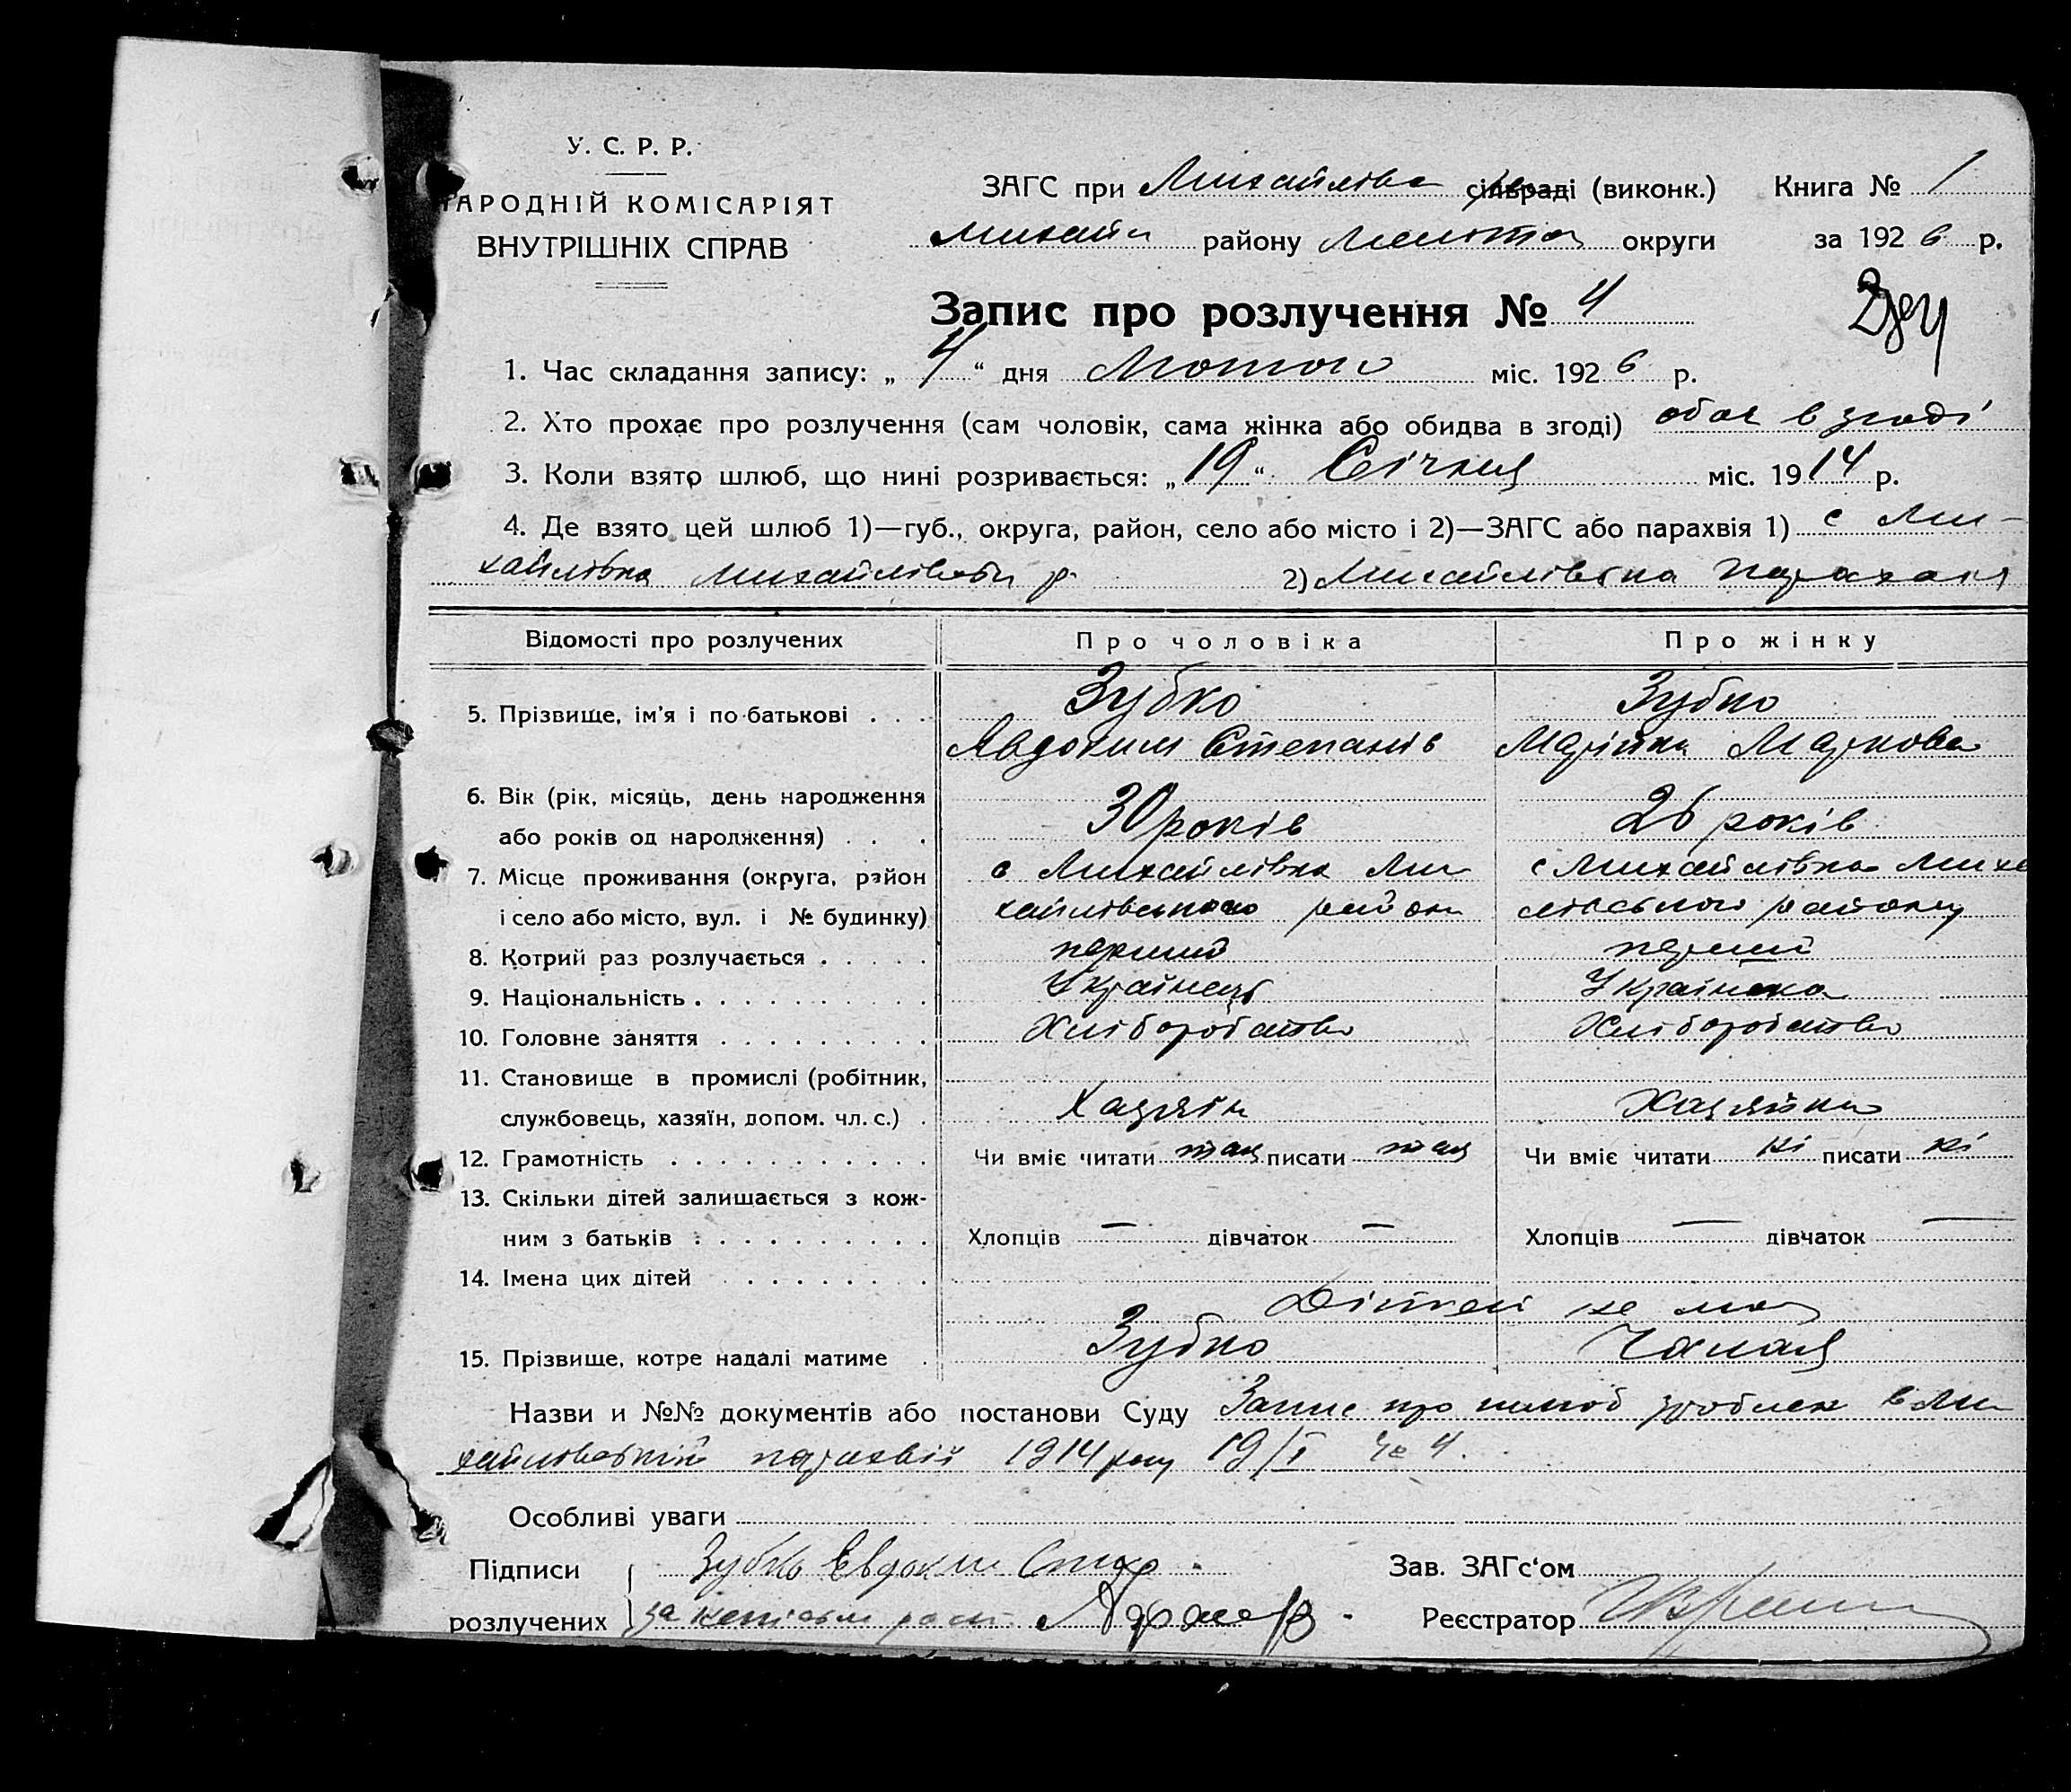 У. С. Р. Р.
АРОДНІЙ КОМІСАРІЯТ
ВНУТРІШНІХ СПРАВ
ЗАГС при Михайлівс сільраді (виконк.) Книга № 1
Михайл району Мелітоп округи за 1926 р.
Запис про розлучення № 4
1. Час складання запису: „4“ дня Лютого міс. 1926 р.
2. Хто прохає про розлучення (сам чоловік, сама жінка або обидва в згоді) обоє в згоді
3. Коли взято шлюб, що нині розривається: „19“ Січня міс. 1914 р.
4. Де взято цей шлюб 1)—губ., округа, район, село або місто і 2)—ЗАГС або парахвія 1) с Ми-
хайлівка Михайлівськ р 2) Михайлівська
Відомості про розлучених Про чоловіка Про жінку
5. Прізвище, ім'я і по-батькові . . . Зубко Зубко
Явдоким Степанів Марійка Маркова
6. Вік (рік, місяць, день народження
або років од народження) . . . 30 років 26 років
7. Місце проживання (округа, район с Михайлівка Ми с Михайлівка Миха
і село або місто, вул. і № будинку) хайлівського району лівського району
8. Котрий раз розлучається . . . . . перший перший
9. Національність . . . . . . . . . . Українець Українка
10. Головне заняття . . . . . . . . . Хліборобство Хліборобство
11. Становище в промислі (робітник,
службовець, хазяїн, допом. чл. с.) . Хазяїн Хазяйка
12. Грамотність . . . . . . . . . . . Чи вміє читати так писати так Чи вміє читати ні писати ні
13. Скільки дітей залишається з кож-
ним з батьків . . . . . . . . . . Хлопців — дівчаток — Хлопців — дівчаток —
14. Імена цих дітей . . . . . . . .
Дітей не має
15. Прізвище, котре надалі матиме . Зубко Чалая
Назви и №№ документів або постанови Суду Запис про шлюб зроблен в Ми
хайлівській парахвії 1914 року 19/I № 4.
Особливі уваги
Підписи Зубко Євдоким Зав. ЗАГс‘ом
розлучених за Реєстратор